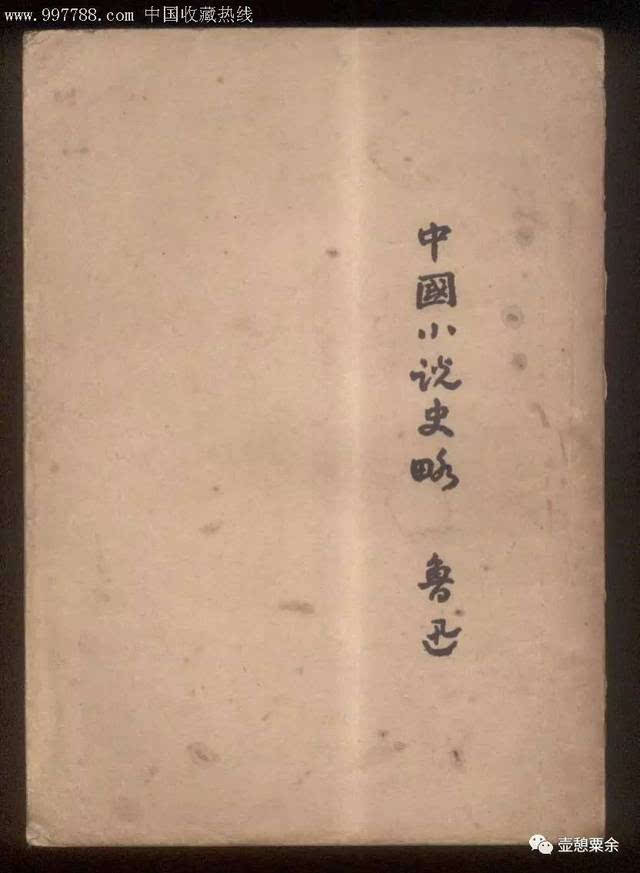 www.997788.com 中国收藏热线
中國小说史略 魯迅
壶憩粟余